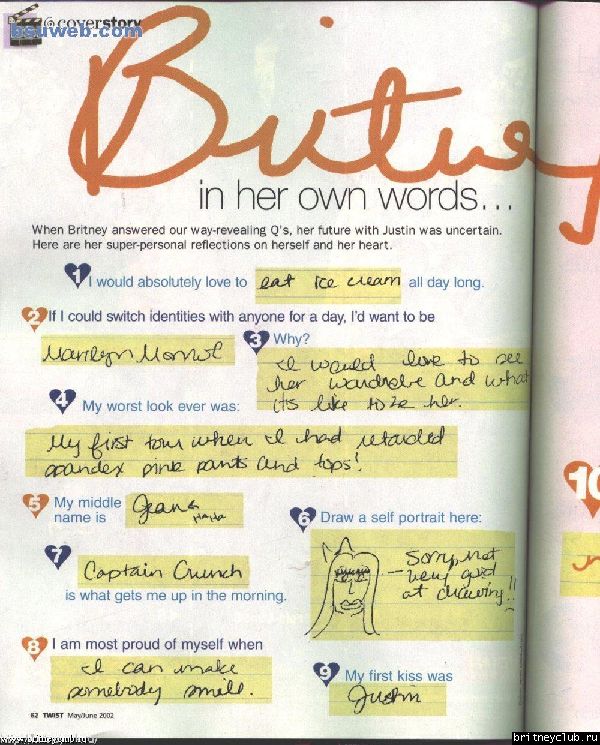 coverstory
bsuweb.com
Britney
in her own words...
When Britney answered our way-revealing Q's, her future with Justin was uncertain.
Here are her super-personal reflections on herself and her heart.
1 I would absolutely love to eat ice cream all day long.
2 If I could switch identities with anyone for a day, I'd want to be
Marilyn Monroe
3 Why?
I would love to see
her wardrobe and what
its like to be her.
4 My worst look ever was:
My first tour when I had retarded
spandex pink pants and tops!
5 My middle
name is Jean
HaHa
6 Draw a self portrait here:
Sorry, not
very good
at drawing!!
7 Captain Crunch
is what gets me up in the morning.
8 I am most proud of myself when
I can make
somebody smile.
9 My first kiss was
Justin
10
62 TWIST May/June 2002
britneyclub.ru